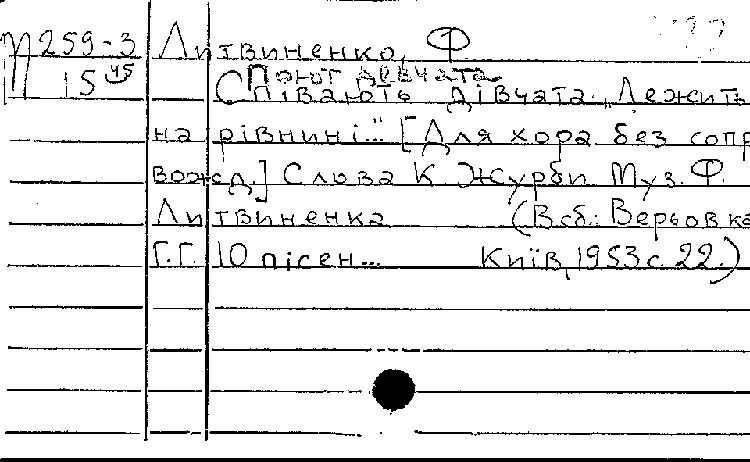 М 259-3 Литвиненко, Ф
15 45 Поют девчата
Співають дівчата. „Лежить
на рівнині..." [Для хора без сопр
вожд.] Слова К Журби Муз. Ф.
Литвиненка (В сб.: Верьовка
Г.Г. 10 пісен... Київ, 1953 с. 22.)